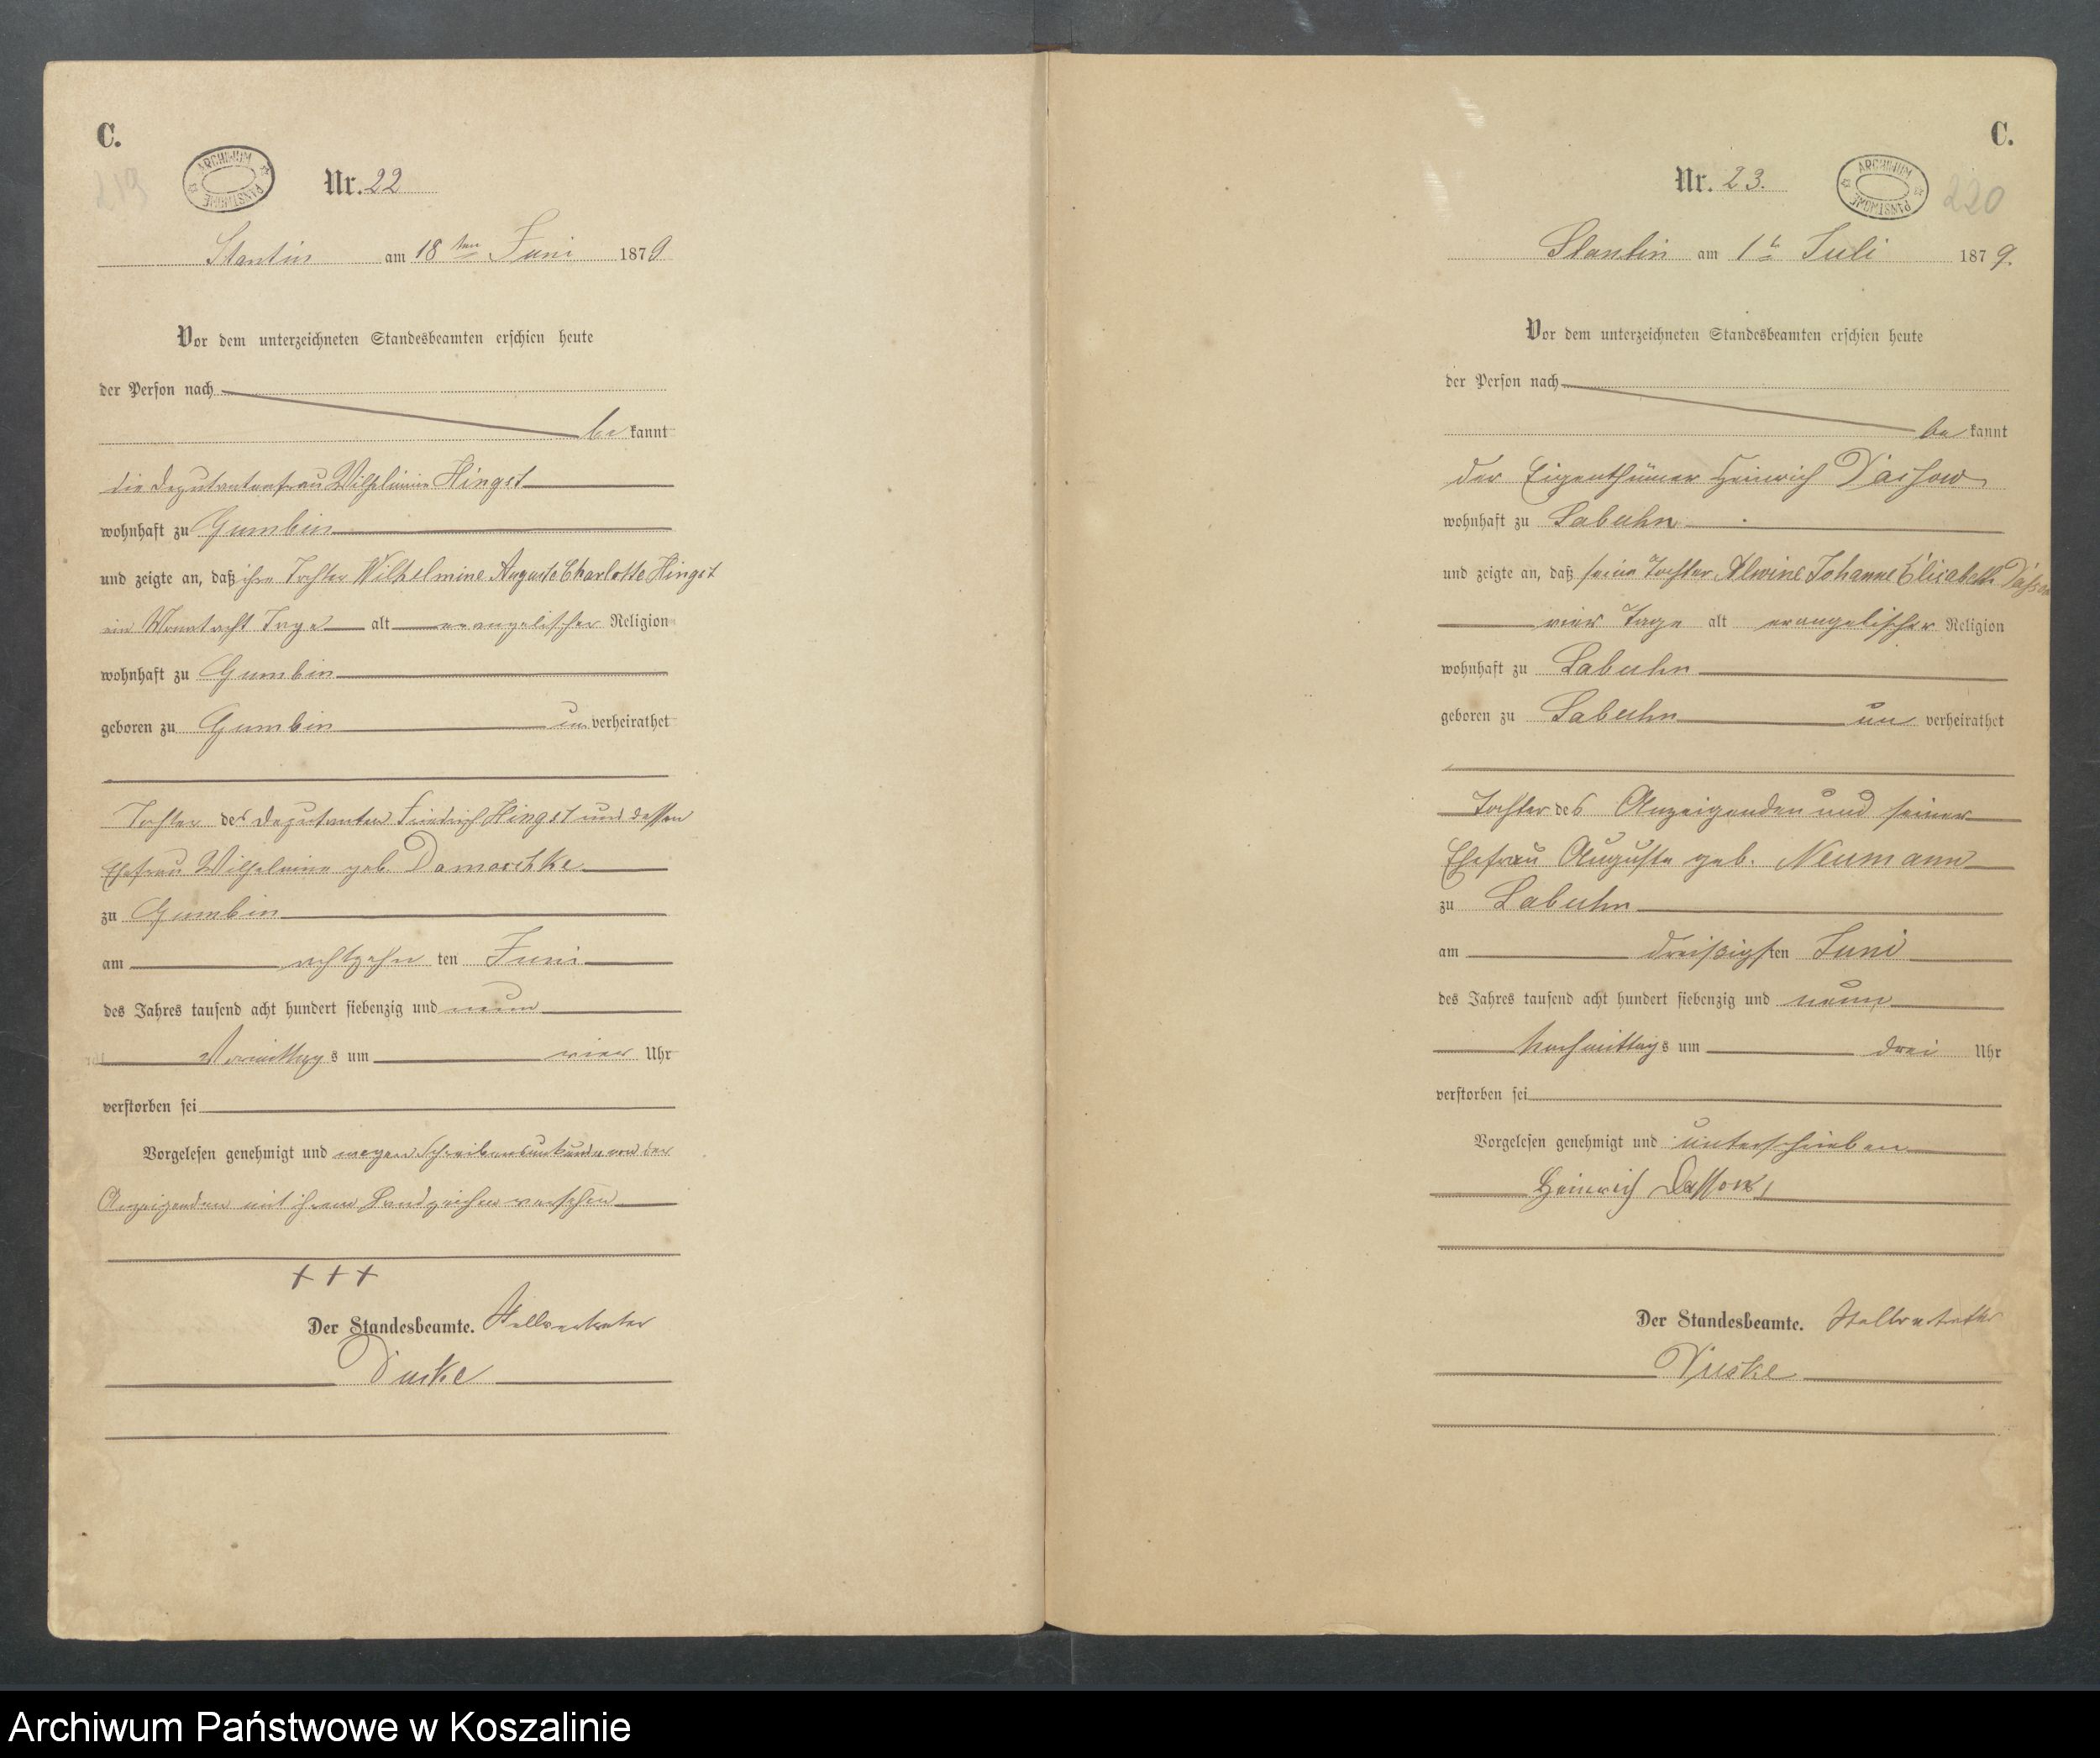 C.
219
ARCHIWUM PAŃSTWOWE
Nr. 22
Stantin am 18ten Juni 1879
Vor dem unterzeichneten Standesbeamten erschien heute
der Person nach
be kannt
die Deputantenfrau Wilhelmine Hingst
wohnhaft zu Gumbin
und zeigte an, daß ihre Tochter Wilhelmine Auguste Charlotte Hingst
ein Monat acht Tage alt evangelischer Religion
wohnhaft zu Gumbin
geboren zu Gumbin un verheirathet
Tochter des Deputanten Friedrich Hingst und dessen
Ehefrau Wilhelmine geb. Damaschke
zu Gumbin
am achtzehn ten Juni
des Jahres tausend acht hundert siebenzig und neun
Vormittags um vier Uhr
verstorben sei
Vorgelesen genehmigt und wegen Schreibensunkunde von der
Anzeigenden mit ihrem Handzeichen versehen
+++
Der Standesbeamte. Stellvertreter
Duske
C.
Nr. 23.
ARCHIWUM PAŃSTWOWE
220
Stantin am 1t Juli 1879.
Vor dem unterzeichneten Standesbeamten erschien heute
der Person nach
be kannt
der Eigenthümer Heinrich Dassow
wohnhaft zu Labuhn
und zeigte an, daß seine Tochter Alwine Johanne Elisabeth Dassow
vier Tage alt evangelischer Religion
wohnhaft zu Labuhn
geboren zu Labuhn un verheirathet
Tochter des Anzeigenden und seiner
Ehefrau Auguste geb. Neumann
zu Labuhn
am dreißigsten Juni
des Jahres tausend acht hundert siebenzig und neun
Nachmittags um drei Uhr
verstorben sei
Vorgelesen genehmigt und unterschrieben
Heinrich Dassow
Der Standesbeamte. Stellvertreter
Duske
Archiwum Państwowe w Koszalinie